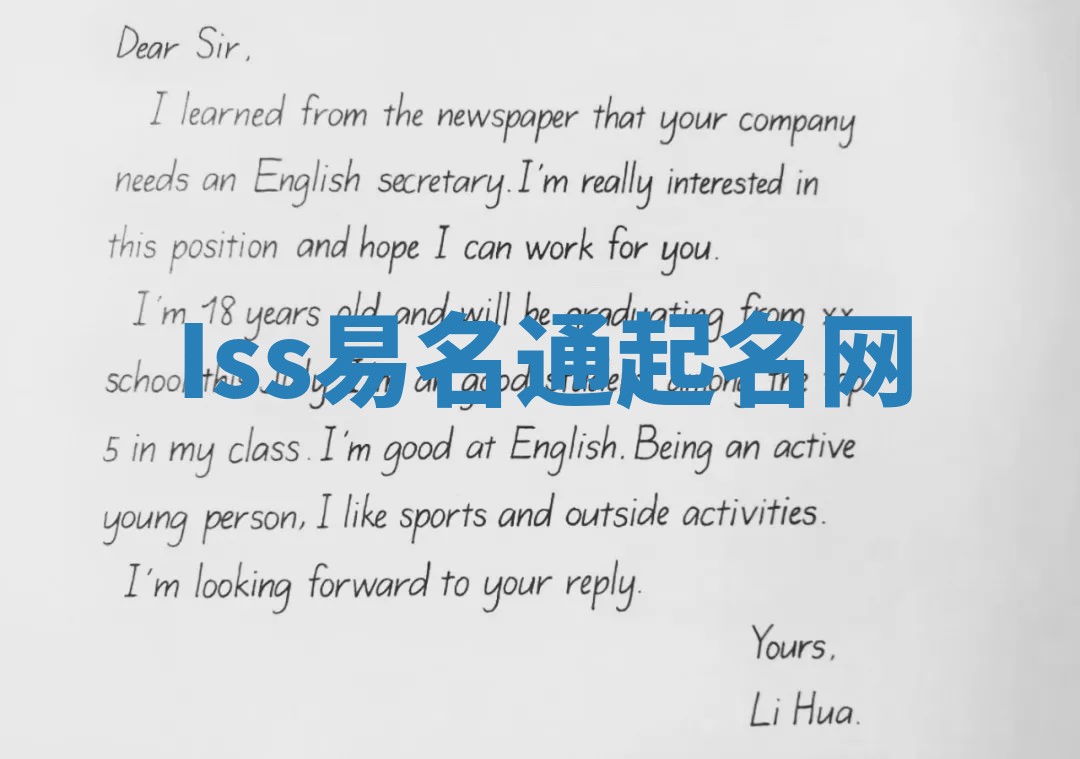 Dear Sir,
I learned from the newspaper that your company
needs an English secretary. I'm really interested in
this position and hope I can work for you.
I'm 18 years old and will be graduating from xx
Iss易名通起名网
school this July. I'm a good student among the top
5 in my class. I'm good at English. Being an active
young person, I like sports and outside activities.
I'm looking forward to your reply.
Yours,
Li Hua.